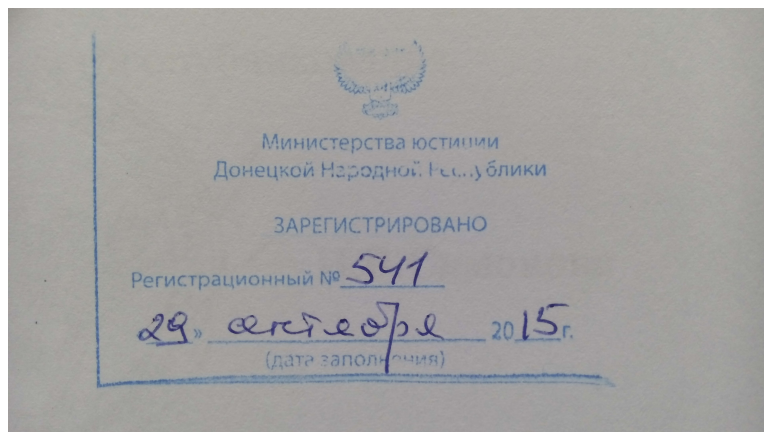 Министерства юстиции
Донецкой Народной Республики
ЗАРЕГИСТРИРОВАНО
Регистрационный № 541
29» сентября 2015 г.
(дата заполнения)